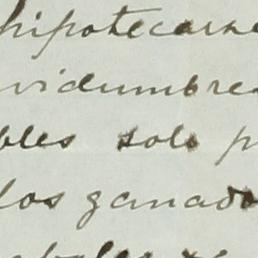 hipotecarse
vidumbres
bles solo p
los ganado